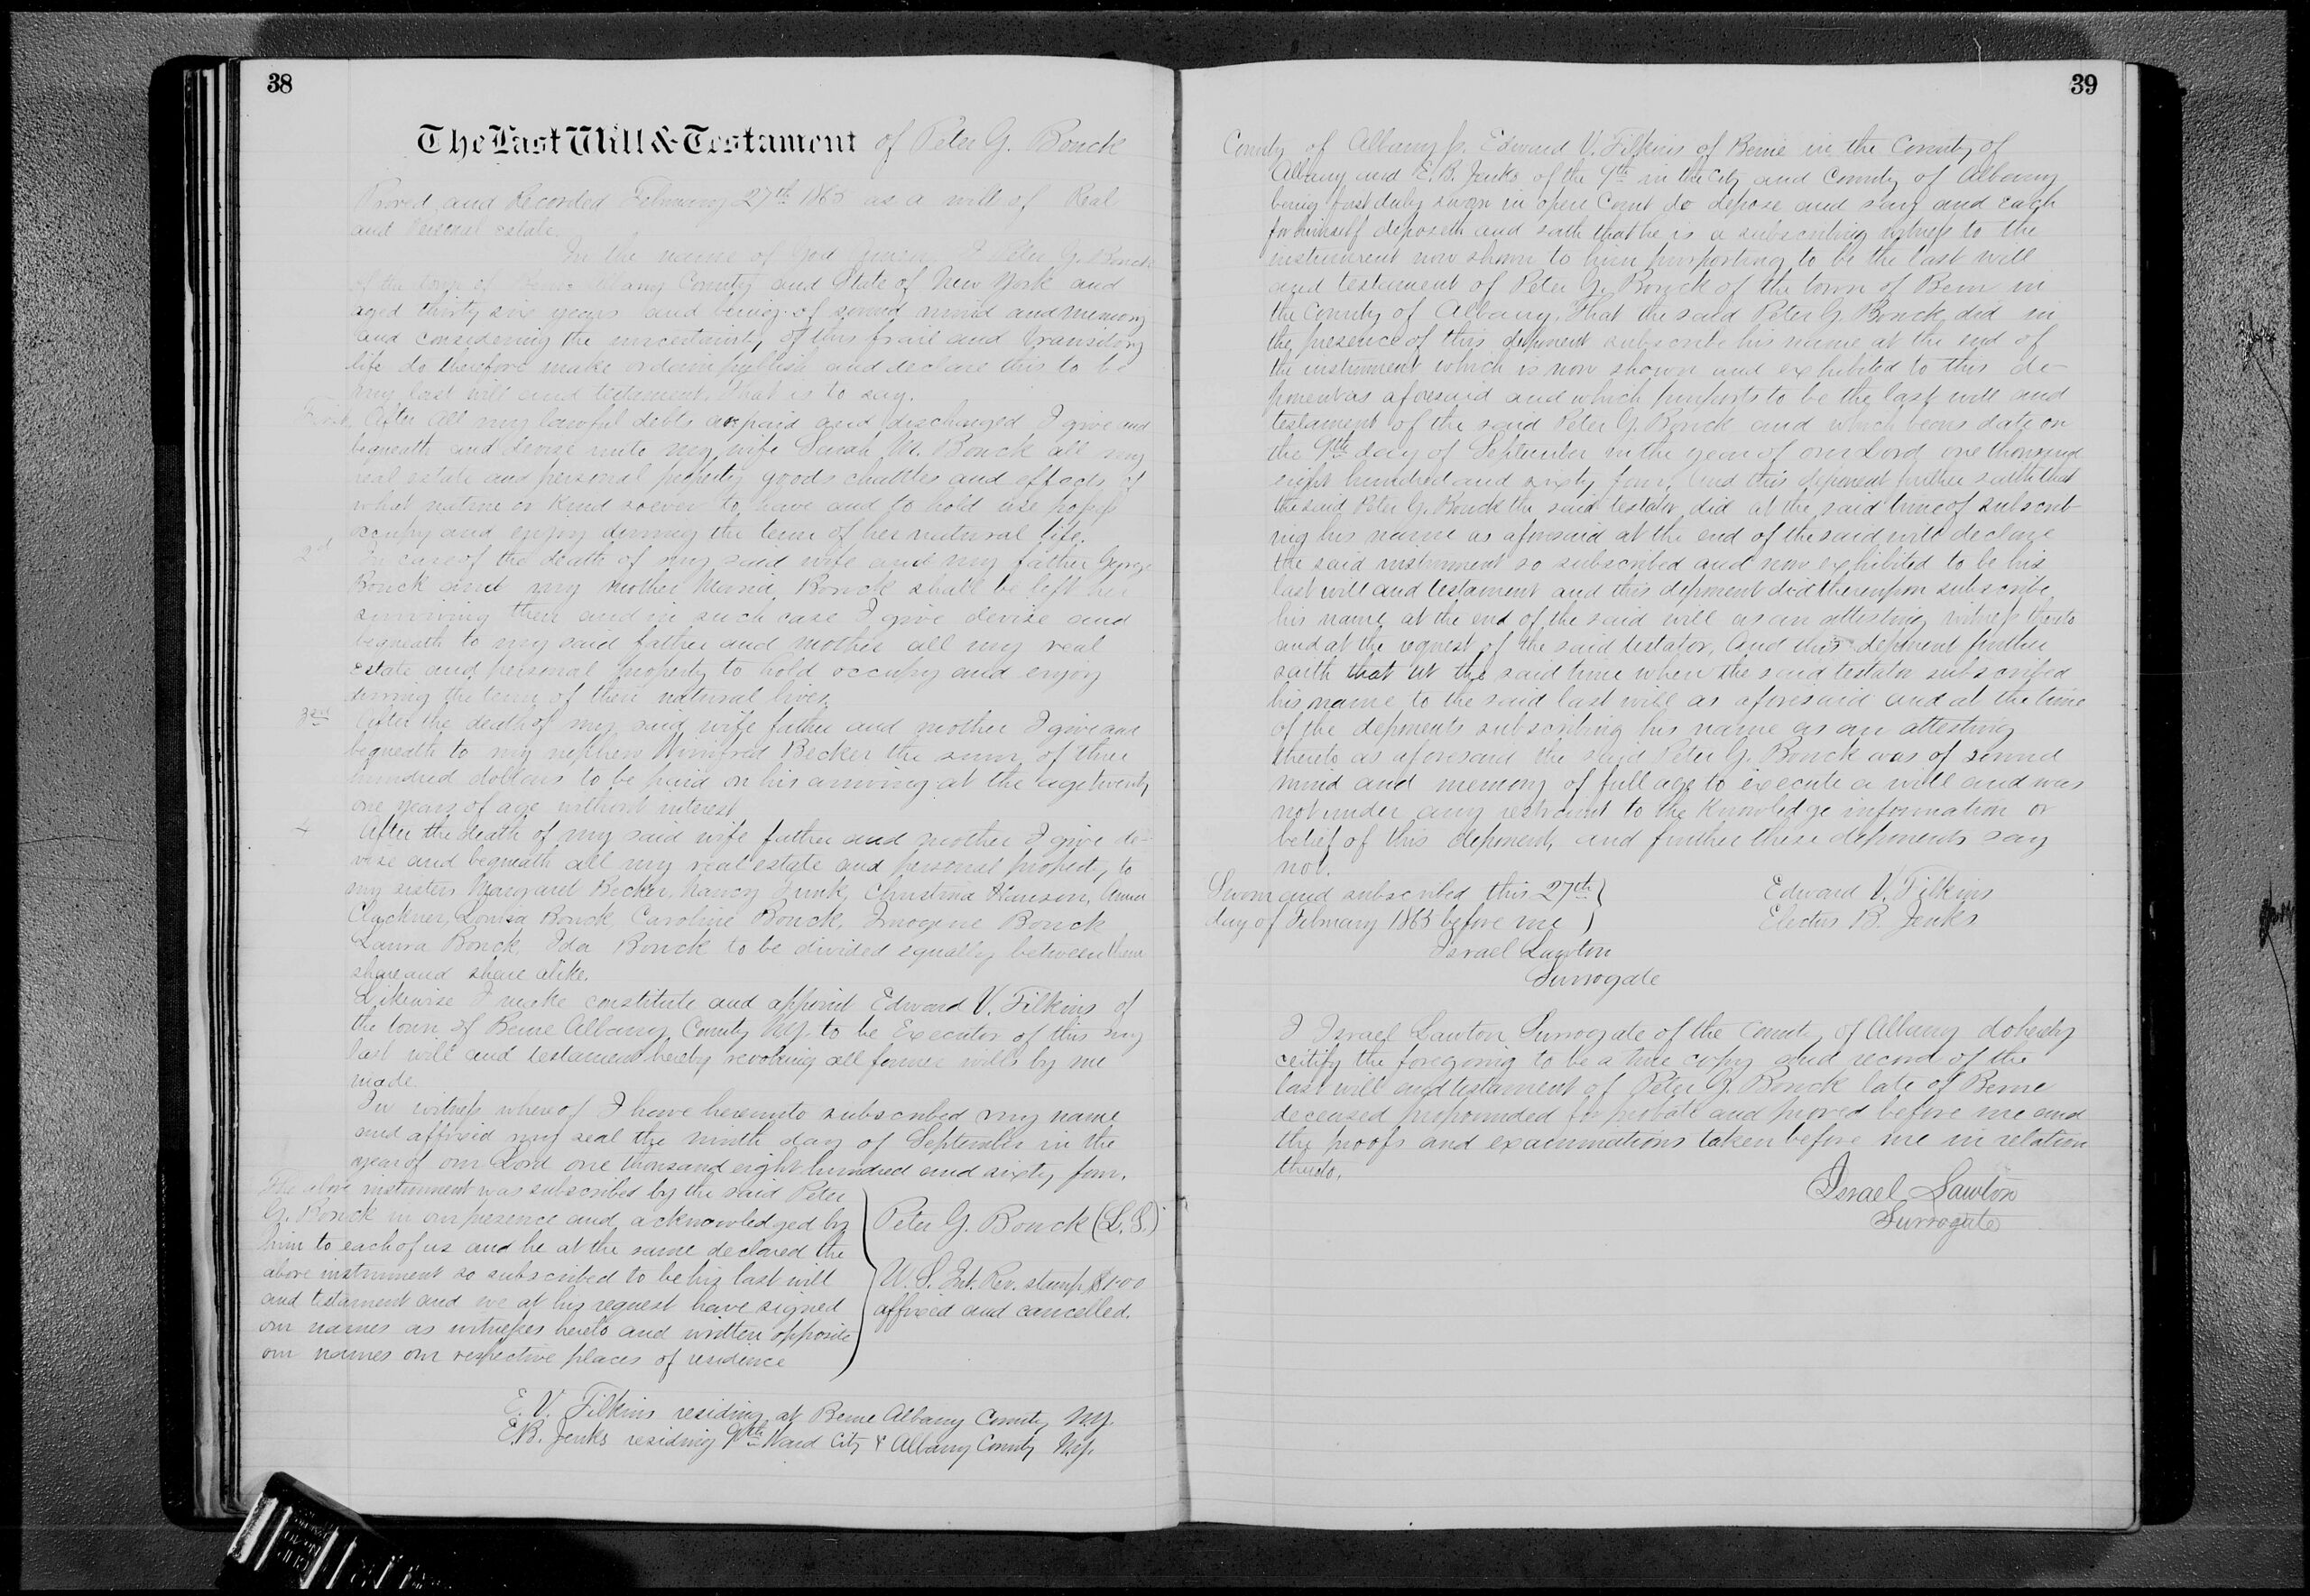 38
The Last Will & Testament of Peter G. Bonck
Proved and Recorded February 27th 1865 as a will of Real
and Personal estate.
In the name of God Amen. I Peter G. Bonck
of the town of Berne Albany County and State of New York and
aged thirty six years and being of sound mind and memory
and considering the uncertainty of this frail and transitory
life do therefore make ordain publish and declare this to be
my last will and testament. That is to say.
First After all my lawful debts are paid and discharged I give and
bequeath and devise unto my wife Sarah M. Bonck all my
real estate and personal property goods chattles and effects of
what nature or kind soever to have and to hold use possess
occupy and enjoy during the term of her natural life.
2d In case of the death of my said wife and my father George
Bonck and my mother Maria Bonck shall be left her
surviving then and in such case I give devise and
bequeath to my said father and mother all my real
estate and personal property to hold occupy and enjoy
during the term of their natural lives.
3rd After the death of my said wife father and mother I give and
bequeath to my nephew Winifred Becker the sum of three
hundred dollars to be paid on his arriving at the age twenty
one years of age without interest
4 After the death of my said wife father and mother I give de-
vise and bequeath all my real estate and personal property to
my sisters Margaret Becker, Nancy Funk, Christina Hanson, Anna
Clyckner, Louisa Bonck, Caroline Bonck, Imogene Bonck
Laura Bonck, Ida Bonck to be divided equally between them
share and share alike.
Likewise I make constitute and appoint Edward V. Filkins of
the town of Berne Albany County N.Y. to be Executor of this my
last will and testament hereby revoking all former wills by me
made.
In witness whereof I have hereunto subscribed my name
and affixed my seal the ninth day of September in the
year of our Lord one thousand eight hundred and sixty four.
The above instrument was subscribed by the said Peter
G. Bonck in our presence and acknowledged by
him to each of us and he at the same declared the
above instrument so subscribed to be his last will
and testament and we at his request have signed
our names as witnesses hereto and written opposite
our names our respective places of residence
Peter G. Bonck (L.S.)
U.S. Int. Rev. stamp $1.00
affixed and cancelled.
E. V. Filkins residing at Berne Albany County N.Y.
E.B. Jenks residing 9th Ward City & Albany County N.Y.
39
County of Albany ss. Edward V. Filkins of Berne in the County of
Albany and E. B. Jenks of the 9th in the city and County of Albany
being first duly sworn in open Court do depose and say and each
for himself deposeth and saith that he is a subscribing witness to the
instrument now shown to him purporting to be the last will
and testament of Peter G. Bonck of the town of Bern in
the County of Albany. That the said Peter G. Bonck did in
the presence of this deponent subscribe his name at the end of
the instrument which is now shown and exhibited to this de-
ponent as aforesaid and which purports to be the last will and
testament of the said Peter G. Bonck and which bears date on
the 9th day of September in the year of our Lord one thousand
eight hundred and sixty four, And this deponent further saith that
the said Peter G. Bonck the said testator did at the said time of subscrib-
ing his name as aforesaid at the end of the said will declare
the said instrument so subscribed and now exhibited to be his
last will and testament and this deponent did thereupon subscribe
his name at the end of the said will as an attesting witness thereto
and at the request of the said testator. And this deponent further
saith that at the said time when the said testator subscribed
his name to the said last will as aforesaid and at the time
of the deponents subscribing his name as an attesting
thereto as aforesaid the said Peter G. Bonck was of sound
mind and memory of full age to execute a will and was
not under any restraint to the knowledge information or
belief of this deponent, and further these deponents say
not.
Sworn and subscribed this 27th
day of February 1865 before me
Israel Lawton
Surrogate
Edward V. Filkins
Electus B. Jenks
I Israel Lawton Surrogate of the County of Albany do hereby
certify the foregoing to be a true copy and record of the
last will and testament of Peter G. Bonck late of Berne
deceased propounded for probate and proved before me and
the proofs and examinations taken before me in relation
thereto.
Israel Lawton
Surrogate